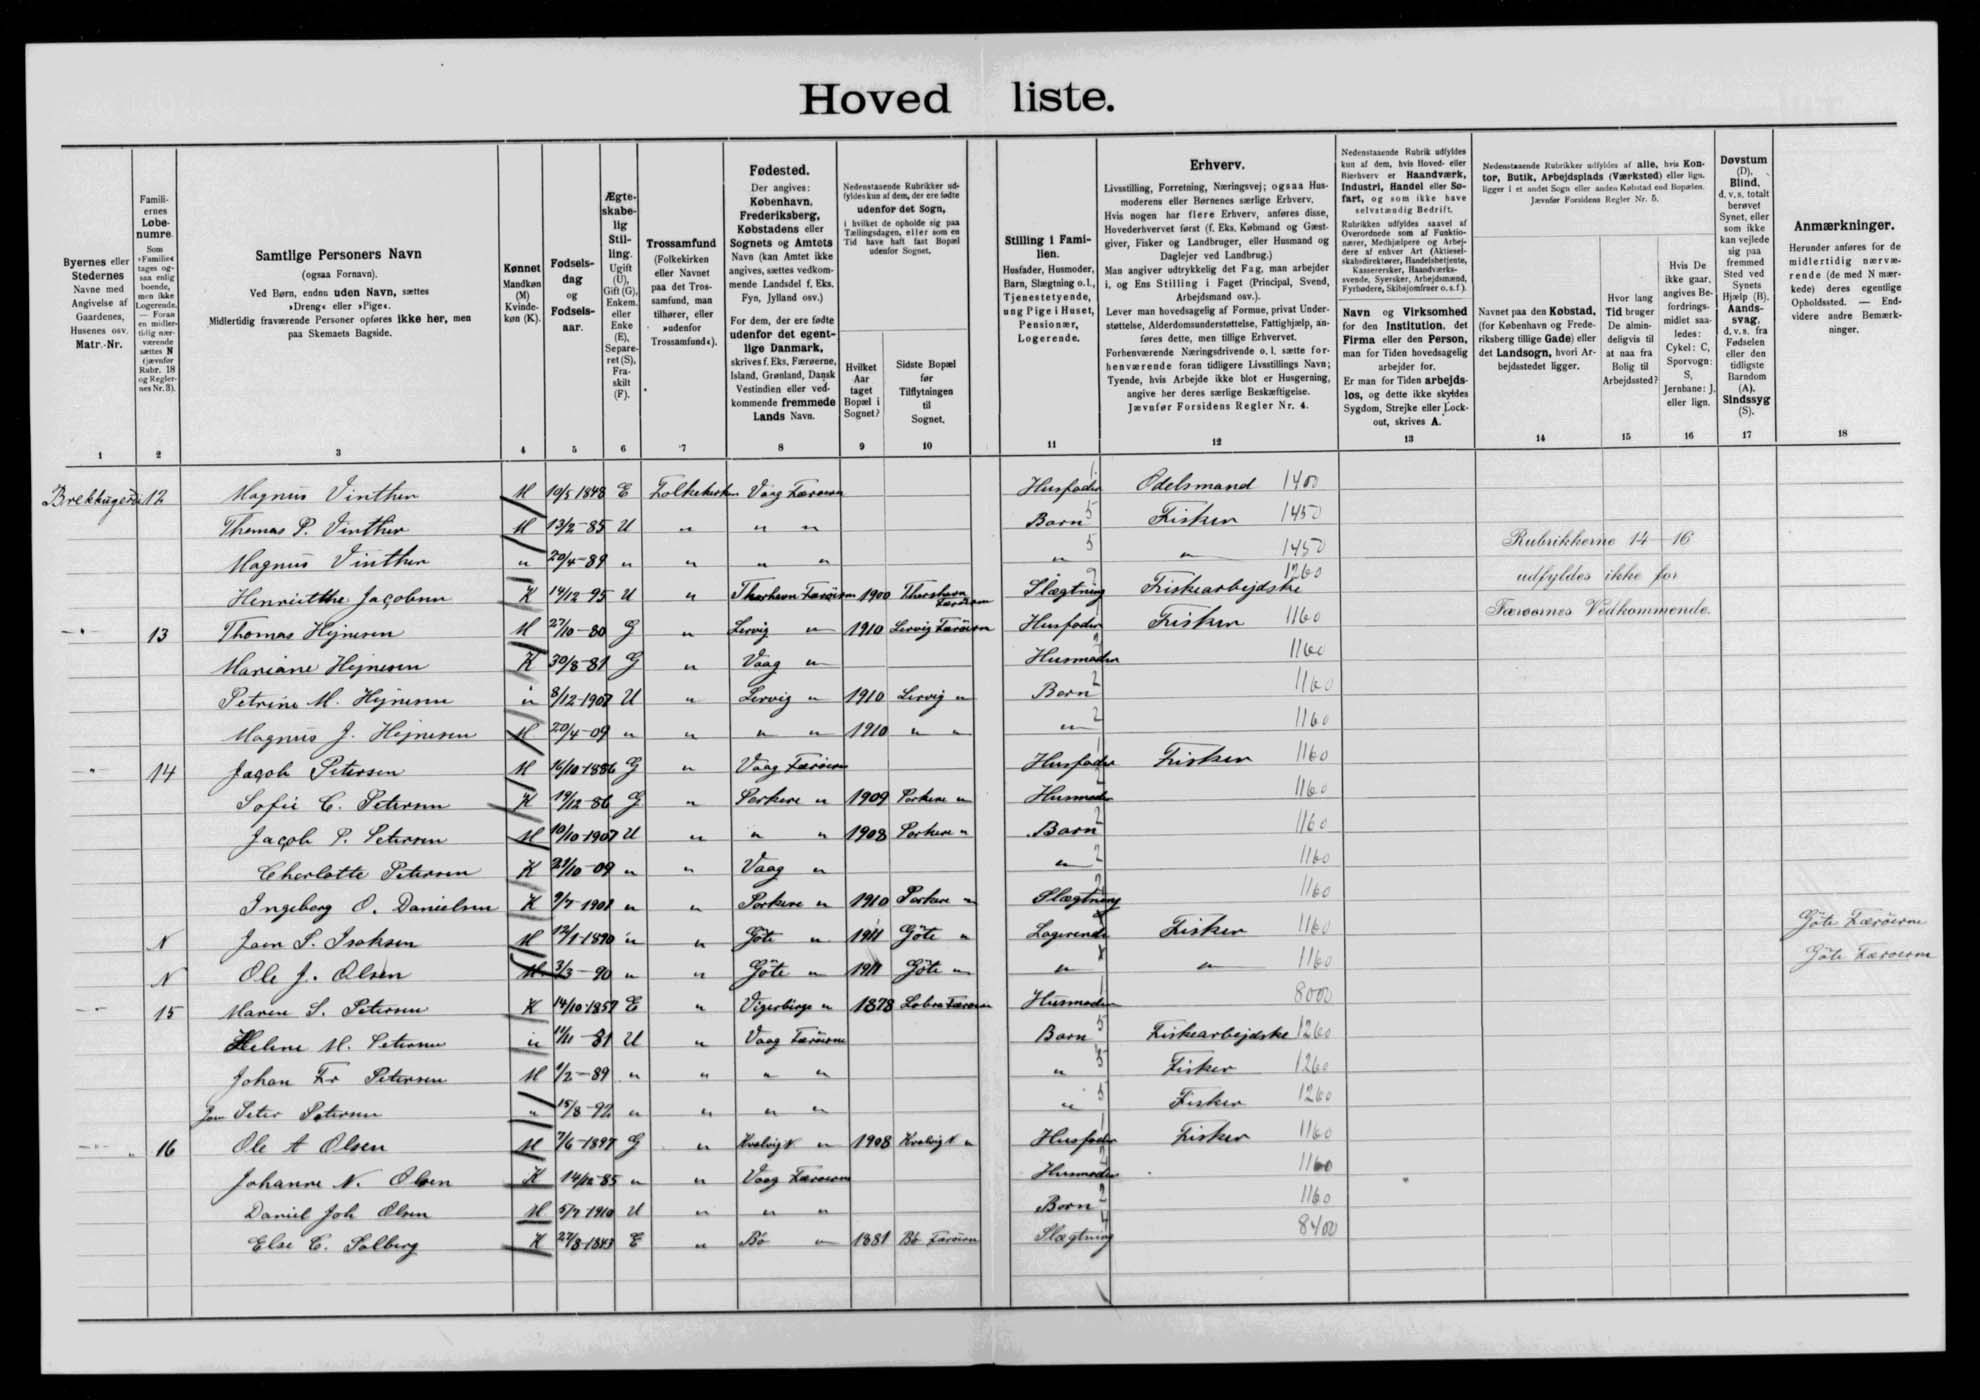 Hoved liste.
Byernes eller
Stedernes
Navne med
Angivelse af
Gaardenes,
Husenes osv.
Matr.-Nr.
1
Famili-
ernes
Løbe-
numre.
Som
»Familie«
tages og-
saa enlig
boende,
men ikke
Logerende.
— Foran
en midler-
tidig nær-
værende
sættes N
(jævnfør
Rubr. 18
og Regler-
nes Nr. 3).
2
Samtlige Personers Navn
(ogsaa Fornavn).
Ved Børn, endnu uden Navn, sættes
»Dreng« eller »Pige«.
Midlertidig fraværende Personer opføres ikke her, men
paa Skemaets Bagside.
3
Kønnet
Mandkøn
(M)
Kvinde-
køn (K).
4
Fødsels-
dag
og
Fødsels-
aar.
5
Ægte-
skabe-
lig
Stil-
ling.
Ugift
(U),
Gift (G),
Enkem.
eller
Enke
(E),
Separe-
ret (S),
Fra-
skilt
(F).
6
Trossamfund
(Folkekirken
eller Navnet
paa det Tros-
samfund, man
tilhører, eller
»udenfor
Trossamfund«).
7
Fødested.
Der angives:
København,
Frederiksberg,
Købstadens eller
Sognets og Amtets
Navn (kan Amtet ikke
angives, sættes vedkom-
mende Landsdel f. Eks.
Fyn, Jylland osv.)
For dem, der ere fødte
udenfor det egent-
lige Danmark,
skrives f. Eks. Færøerne,
Island, Grønland, Dansk
Vestindien eller ved-
kommende fremmede
Lands Navn.
8
Nedenstaaende Rubrikker ud-
fyldes kun af dem, der ere fødte
udenfor det Sogn,
i hvilket de opholde sig paa
Tællingsdagen, eller som en
Tid have haft fast Bopæl
udenfor Sognet.
Hvilket
Aar
taget
Bopæl i
Sognet?
9
Sidste Bopæl
før
Tilflytningen
til
Sognet.
10
Stilling i Fami-
lien.
Husfader, Husmoder,
Barn, Slægtning o.l.,
Tjenestetyende,
ung Pige i Huset,
Pensionær,
Logerende.
11
Erhverv.
Livsstilling, Forretning, Næringsvej; ogsaa Hus-
moderens eller Børnenes særlige Erhverv.
Hvis nogen har flere Erhverv, anføres disse,
Hovederhvervet først (f. Eks. Købmand og Gæst-
giver, Fisker og Landbruger, eller Husmand og
Daglejer ved Landbrug.)
Man angiver udtrykkelig det Fag, man arbejder
i, og Ens Stilling i Faget (Principal, Svend,
Arbejdsmand osv.).
Lever man hovedsagelig af Formue, privat Under-
støttelse, Alderdomsunderstøttelse, Fattighjælp, an-
føres dette, men tillige Erhvervet.
Forhenværende Næringsdrivende o. l. sætte for-
henværende foran tidligere Livsstillings Navn;
Tyende, hvis Arbejde ikke blot er Husgerning,
angive her deres særlige Beskæftigelse.
Jævnfør Forsidens Regler Nr. 4.
12
Nedenstaaende Rubrik udfyldes
kun af dem, hvis Hoved- eller
Bierhverv er Haandværk,
Industri, Handel eller Sø-
fart, og som ikke have
selvstændig Bedrift.
Rubrikken udfyldes saavel af
Overordnede som af Funktio-
nærer, Medhjælpere og Arbej-
dere af enhver Art (Aktiesel-
skabsdirektører, Handelsbetjente,
Kasserersker, Haandværks-
svende, Syersker, Arbejdsmænd,
Fyrbødere, Skibsjomfruer o.s.f.).
Navn og Virksomhed
for den Institution, det
Firma eller den Person,
man for Tiden hovedsagelig
arbejder for.
Er man for Tiden arbejds-
løs, og dette ikke skyldes
Sygdom, Strejke eller Lock-
out, skrives A.
13
Nedenstaaende Rubrikker udfyldes af alle, hvis Kon-
tor, Butik, Arbejdsplads (Værksted) eller lign.
ligger i et andet Sogn eller anden Købstad end Bopælen.
Jævnfør Forsidens Regler Nr. 5.
Navnet paa den Købstad,
(for København og Frede-
riksberg tillige Gade) eller
det Landsogn, hvori Ar-
bejdsstedet ligger.
14
Hvor lang
Tid bruger
De almin-
deligvis til
at naa fra
Bolig til
Arbejdssted?
15
Hvis De
ikke gaar,
angives Be-
fordrings-
midlet saa-
ledes:
Cykel: C,
Sporvogn:
S,
Jernbane: J.
eller lign.
16
Døvstum
(D),
Blind,
d. v. s. totalt
berøvet
Synet, eller
som ikke
kan vejlede
sig paa
fremmed
Sted ved
Synets
Hjælp (B).
Aands-
svag,
d. v. s. fra
Fødselen
eller den
tidligste
Barndom
(A).
Sindssyg
(S).
17
Anmærkninger.
Herunder anføres for de
midlertidig nærvæ-
rende (de med N mær-
kede) deres egentlige
Opholdssted. — End-
videre andre Bemærk-
ninger.
18
12 Magnus Vinther M 10/5 1848 E Folkekirken Vaag Færøerne Husfader 1 Odelsmand 1400
Thomas P. Vinther M 13/2-85 U " " " Barn 5 Fisker 1450
Magnus Vinther " 20/4-89 " " " " " 5 " 1450
Rubrikkerne 14-16
Henriette Jacobsen K 14/12 95 U " Thorshavn Færøerne 1900 Thorshavn Færøerne Slægtning 9 Fiskearbejdske 1260
udfyldes ikke for
Færøernes Vedkommende.
" 13 Thomas Hejnesen M 27/10-80 G " Lervig " 1910 Lervig Færøerne Husfader Fisker 1160
Mariane Hejnesen K 30/8-81 G " Vaag " Husmoder 2 1160
Petrine M. Hejnesen " 8/12-1907 U " Lervig " 1910 Lervig " Barn 2 1160
Magnus J. Hejnesen M 20/4-09 " " " " 1910 " " " 2 1160
" 14 Jacob Petersen M 16/10-1886 G " Vaag Færøerne Husfader 1 Fisker 1160
Sofie C. Petersen K 19/12-86 G " Porkere " 1909 Porkere " Husmoder 1160
Jacob P. Petersen M 10/10-1907 U " " " 1908 Porkere " Barn 2 1160
Charlotte Petersen K 21/10-09 " " Vaag " " 2 1160
Ingeborg O. Danielsen K 9/7-1901 " " Porkere " 1910 Porkere " Slægtning 1160
N Joen P. Isaksen M 12/1-1890 " " Göte " 1911 Göte " Logerende Fisker 1160 Göte Færøerne
N Ole J. Olsen M 3/3-90 " " Göte " 1911 Göte " " " 1160 Göte Færøerne
" 15 Maren S. Petersen K 14/10-1857 E " 1878 Husmoder 1 8000
Helene M. Petersen " 11/11-81 U " Vaag Færøerne Barn 5 Fiskearbejdske 1260
Johan Fr Petersen M 1/2-89 " " " " " 5 Fisker 1260
Joen Peter Petersen " 15/8-92 " " " " " 5 Fisker 1260
" 16 Ole A Olsen M 7/6-1887 G " Kvalvig N " 1908 Kvalvig N " Husfader 1 Fisker 1160
Johanne N. Olsen K 14/12-85 " " Vaag Færøerne Husmoder 2 1160
Daniel Joh Olsen M 5/7-1910 U " " " Barn 2 1160
Else C. Solberg K 27/8-1843 E " Bö " 1881 Bö Færøerne Slægtning 4 8400